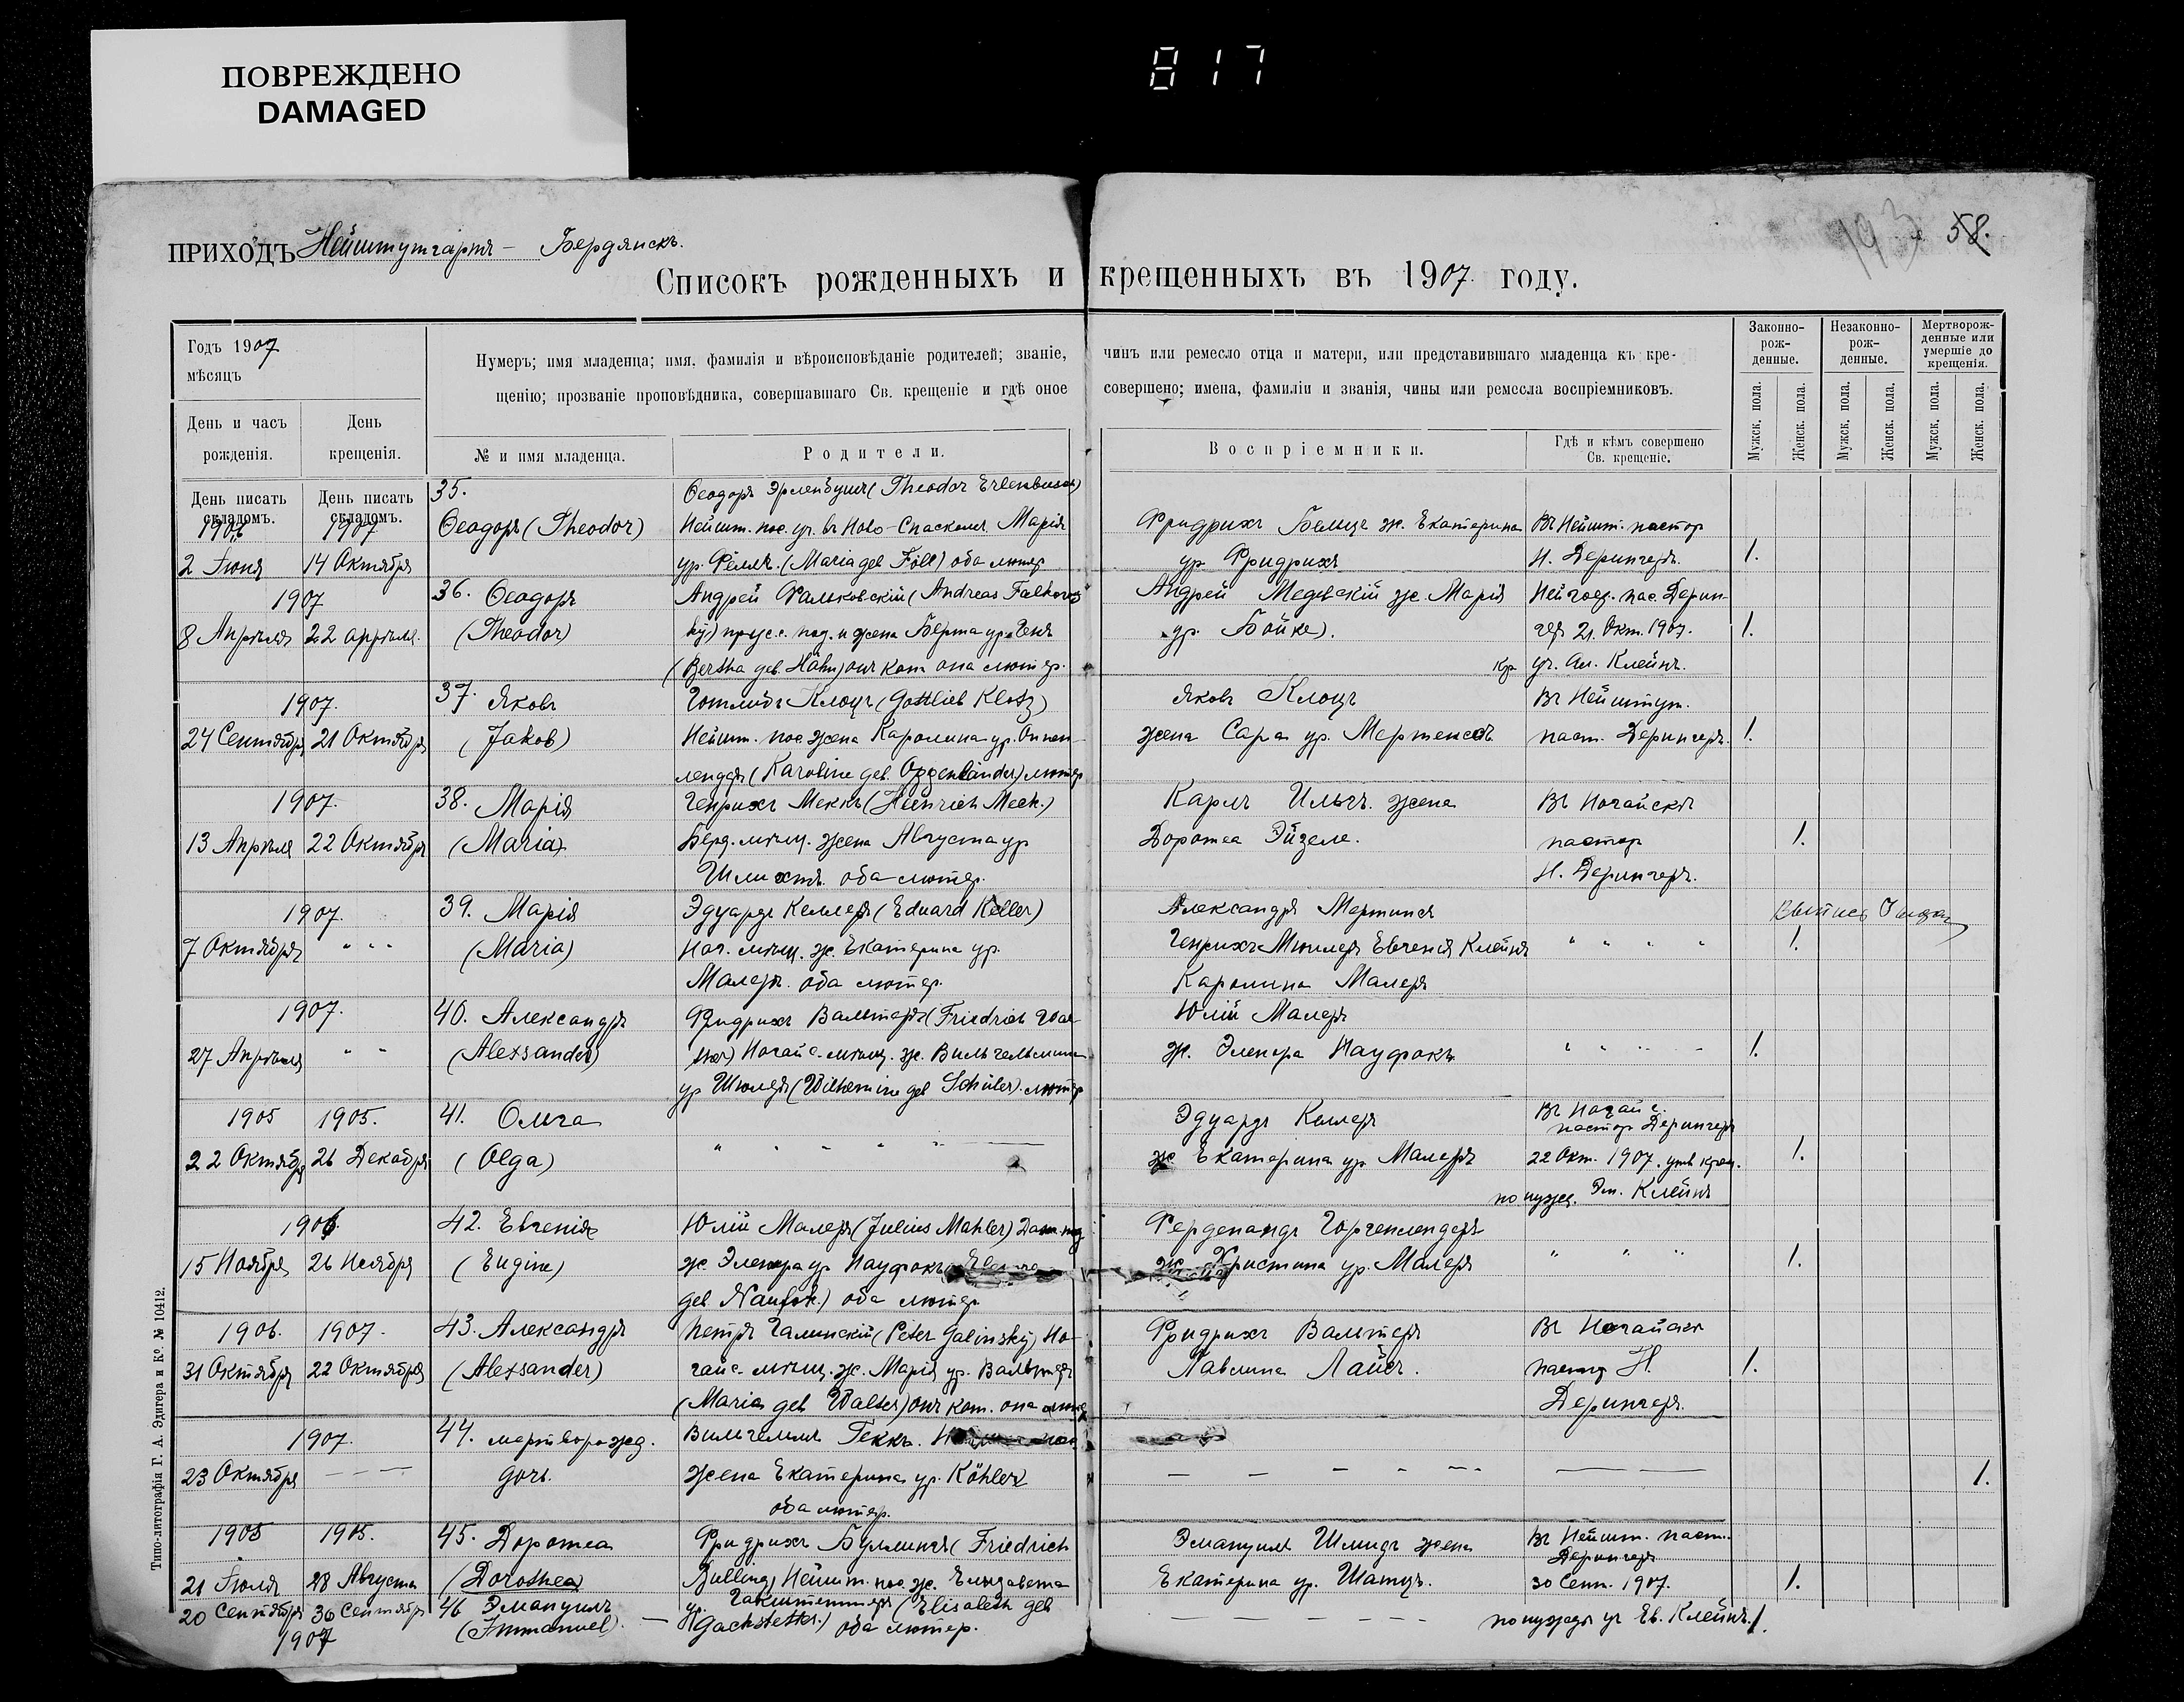 ПОВРЕЖДЕНО
DAMAGED
817
193 58.
ПРИХОДЪ Нейштутгартъ – Бердянскъ.
Списокъ рожденныхъ и крещенныхъ въ 1907. году.
Годъ 1907
мѣсяцъ
День и часъ
рожденія.
День
крещенія.
Нумеръ; имя младенца; имя, фамилія и вѣроисповѣданіе родителей; званіе, чинъ или ремесло отца и матери, или представившаго младенца къ кре-
щенію; прозваніе проповѣдника, совершавшаго Св. крещеніе и гдѣ оное совершено; имена, фамиліи и званія, чины или ремесла воспріемниковъ.
№ и имя младенца.
Родители.
Воспріемники.
Гдѣ и кѣмъ совершено
Св. крещеніе.
Законно-
рож-
денные.
Незаконно-
рож-
денные.
Мертворож-
денные или
умершіе до
крещенія.
Мужск. пола.
Женск. пола.
Мужск. пола.
Женск. пола.
Мужск. пола.
Женск. пола.
День писать
складомъ.
День писать
складомъ.
35. Ѳеодоръ Эрленбушъ (Theodor Erlenbusch)
1906 1907 Ѳеодоръ (Theodor) Нейшт. пос. уч. въ Ново-Спаскомъ Марія Фридрихъ Бельцъ ж. Екатерина Въ Нейшт. пасторъ
2 Іюня 14 Октября ур. Фёлль. (Maria geb Föll) оба лютер. ур Фридрихъ Н. Дерингеръ. 1.
1907 36. Ѳеодоръ Андрей Фальковскій (Andreas Falkows Андрей Медевскій ж. Марія пас. Дерин-
8 Апрѣля 22 апрѣля. (Theodor) ky) прус. под. и жена Берта ур. Генъ ур. Бойке). геръ 21. Окт. 1907. 1.
(Bertha geb. Hähn) онъ кат она лютер. кр уч. Ал. Клейнъ.
1907. 37. Яковъ Готлибъ Клоцъ (Gottlieb Klotz) Яковъ Клоцъ Въ Нейштут.
24 Сентября 21 Октября (Jakob) Нейшт. пос. жена Каролина ур. Оппен- жена Сара ур. Мартенсъ паст. Дерингеръ. 1.
лендеръ (Karoline geb. Oppenländer) лютер
1907. 38. Марія Генрихъ Меккъ (Heinrich Meck.) Карлъ Ильгъ. жена Въ Ногайскѣ
13 Апрѣля 22 Октября (Maria) Берд. мѣщ. жена Августа ур Доротеа Эйзеле. пасторъ 1.
Шлихтъ. оба лютер. Н. Дерингеръ.
1907. 39. Марія Эдуардъ Келлеръ (Eduard Keller) Александръ Мартинсъ
7 Октября " " " (Maria) Ног. мѣщ. ж. Екатерина ур. Генрихъ Мюллеръ Евгенія Клейнъ " " " " 1.
Малеръ. оба лютер. Каролина Малеръ
1907. 40. Александръ Фридрихъ Вальтеръ (Friedrich Wal- Юлій Малеръ
27 Апрѣля " " (Alexsander) ther) Ногайс. мѣщ. ж. Вильгельмина ж. Эленора Науфокъ " " " " 1.
ур Шюлеръ (Wilhemine geb Schüler). лютер
1905 1905. 41. Ольга Эдуардъ Келлеръ Въ Ногайс.
пасторъ Дерингеръ
22 Октября 26 Декабря (Olga) " " " " " ж Екатерина ур Малеръ 22 Окт. 1907. утв. крещ. 1.
по нужд. Эм. Клейнъ
1906. 42. Евгенія Юлій Малеръ (Julius Mahler) Фердинандъ
15 Ноября 26 Ноября (Eugine) ж. Эленора ур Науфокъ ж Христина ур. Малеръ " " " 1.
geb Naufok.) оба лютер.
1906. 1907. 43. Александръ Петръ Галинскій (Peter Galinsky) Но- Фридрихъ Вальтеръ Въ Ногайскѣ
31 Октября 22 Октября (Alexsander) гайс. мѣщ. ж. Марія ур. Вальтеръ Павлина Лайеръ. пастор Н. 1.
(Maria geb Walter) онъ кат. она лютер Дерингеръ.
1907. 44. мертворожд. Вильгельмъ Геккъ.
23 Октября дочь. жена Екатерина ур. Köhler 1.
оба лютер.
1905 1905. 45. Доротеа Фридрихъ Буллингъ (Friedrich Эмануилъ Шмидъ жена Въ Нейшт. паст.
Дерингеръ
21 Іюля 28 Августа (Dorothea) Bulling) Нейшт. пос. ж. Елизавета Екатерина ур. Шатцъ. 30 Сент. 1907. 1.
20 Сентября 30 Сентября 46 Эмануилъ ур. Гакштеттеръ (Elisabeth geb
1907 (Immanuel). Gackstetter.) оба лютер. по нуждѣ уч Ев. Клейнъ. 1.
Типо-литографія Г. А. Эдигера и Ко. № 10412.